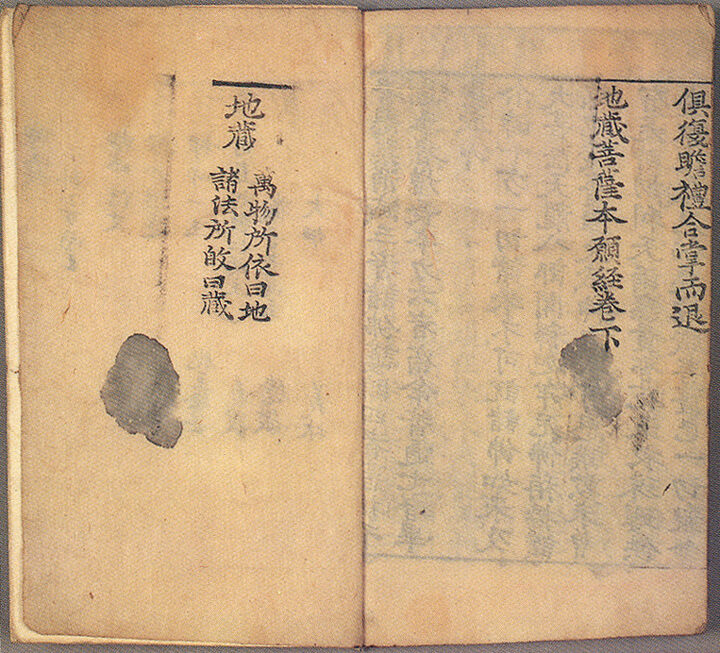 俱復瞻禮合掌而退
地藏菩薩本願経卷下
地藏
萬物所依曰地
諸法所㪉曰藏